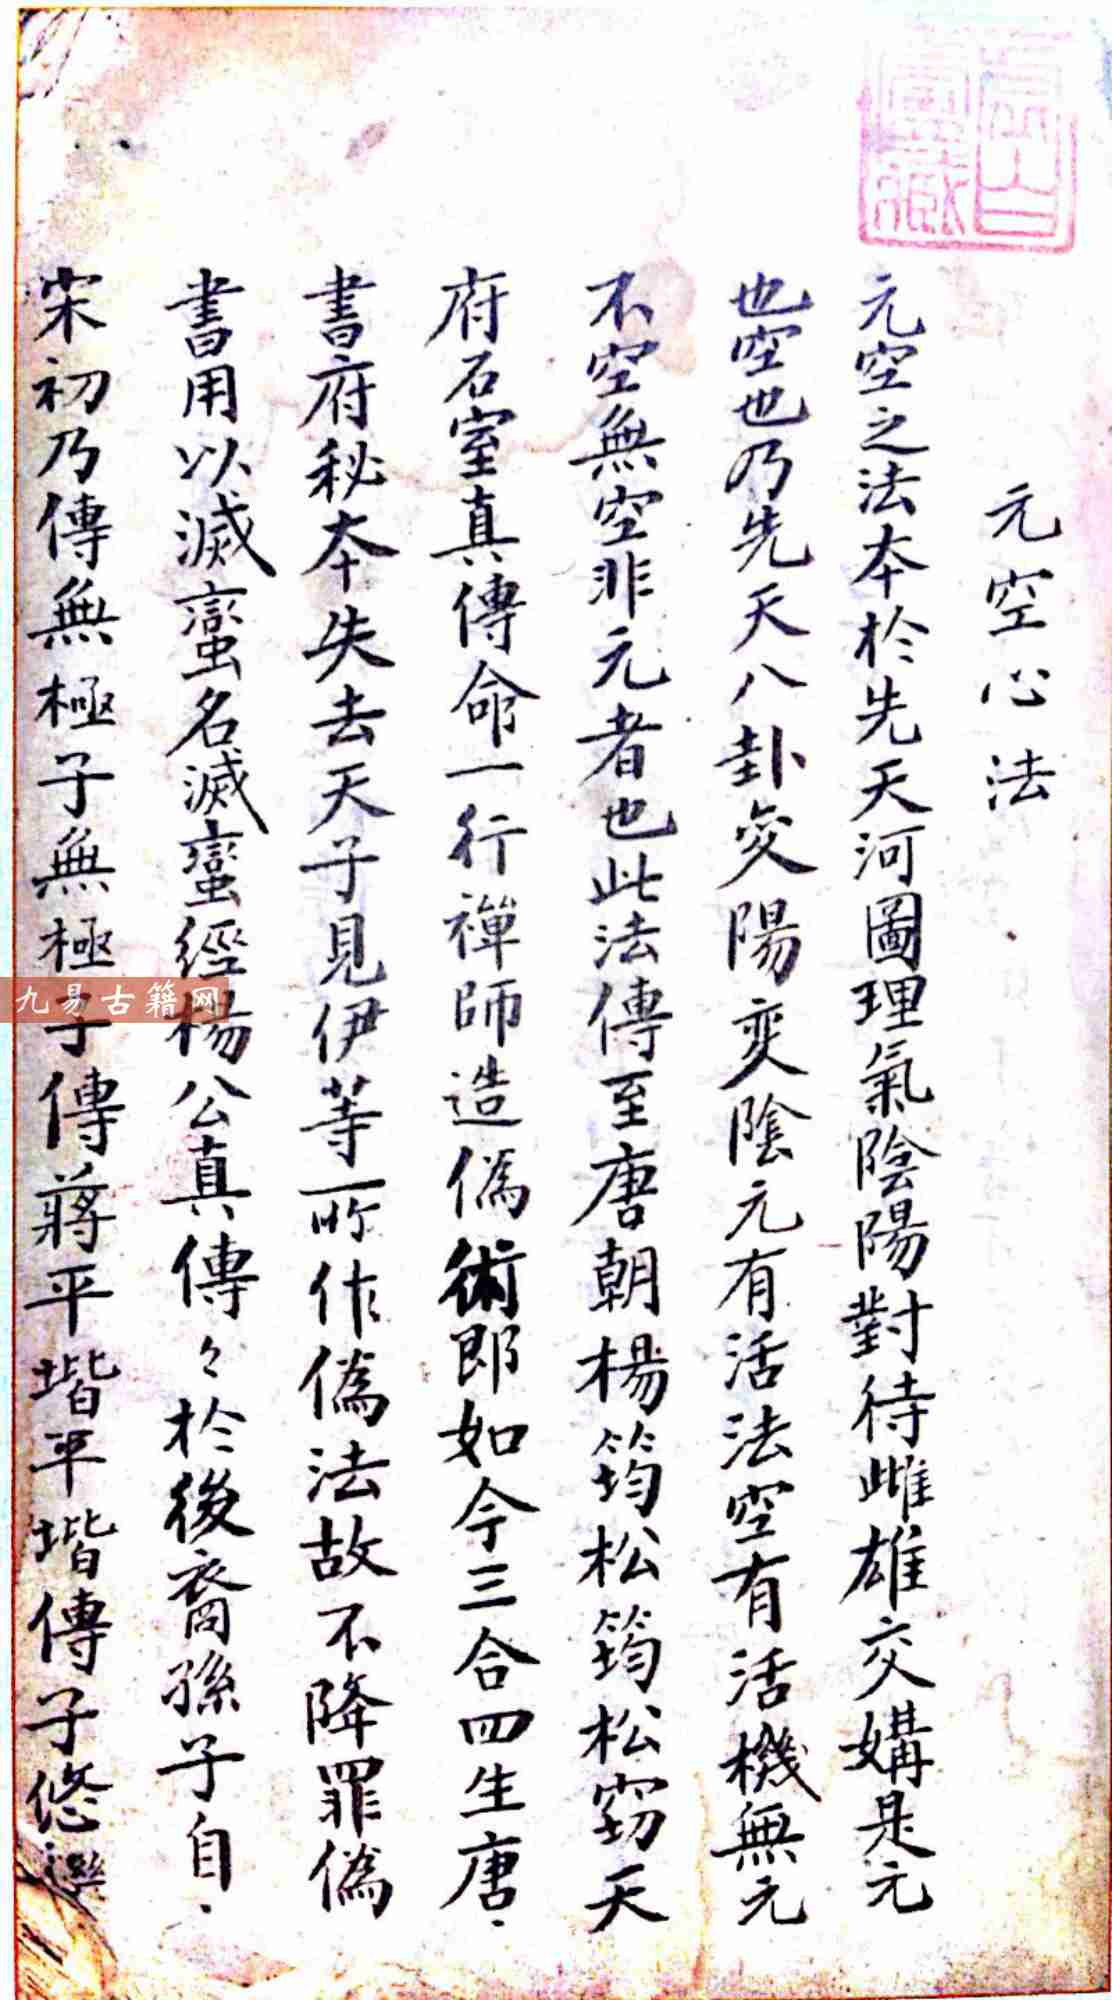 元空心法
元空之法本於先天河圖理氣陰陽對待雌雄交媾是元
也空也乃先天八卦交陽爻陰元有活法空有活機無元
不空無空非元者也此法傳至唐朝楊筠松筠松竊天
府石室真傳命一行禪師造偽術即如今三合四生唐
書府秘本失去天子見伊等所作偽法故不降罪偽
書用以滅蠻名滅蠻經楊公真傳々於後裔孫子自
宋初乃傳無極子無極子傳蔣平堦平堦傳子悠
九易古籍网